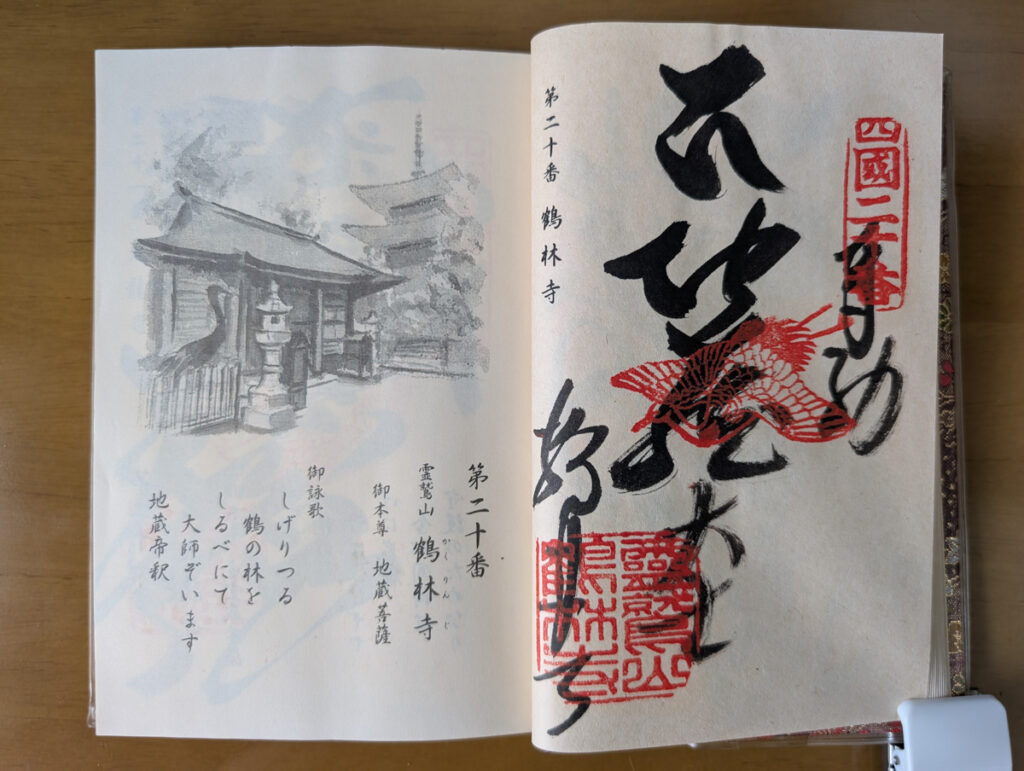 四國二十番
地蔵大士
靈鷲山
鶴林寺
鶴林寺
第二十番 鶴林寺
第二十番
霊鷲山 鶴林寺
かくりんじ
御本尊 地蔵菩薩
御詠歌
しげりつる
鶴の林を
しるべにて
大師ぞいます
地蔵帝釈